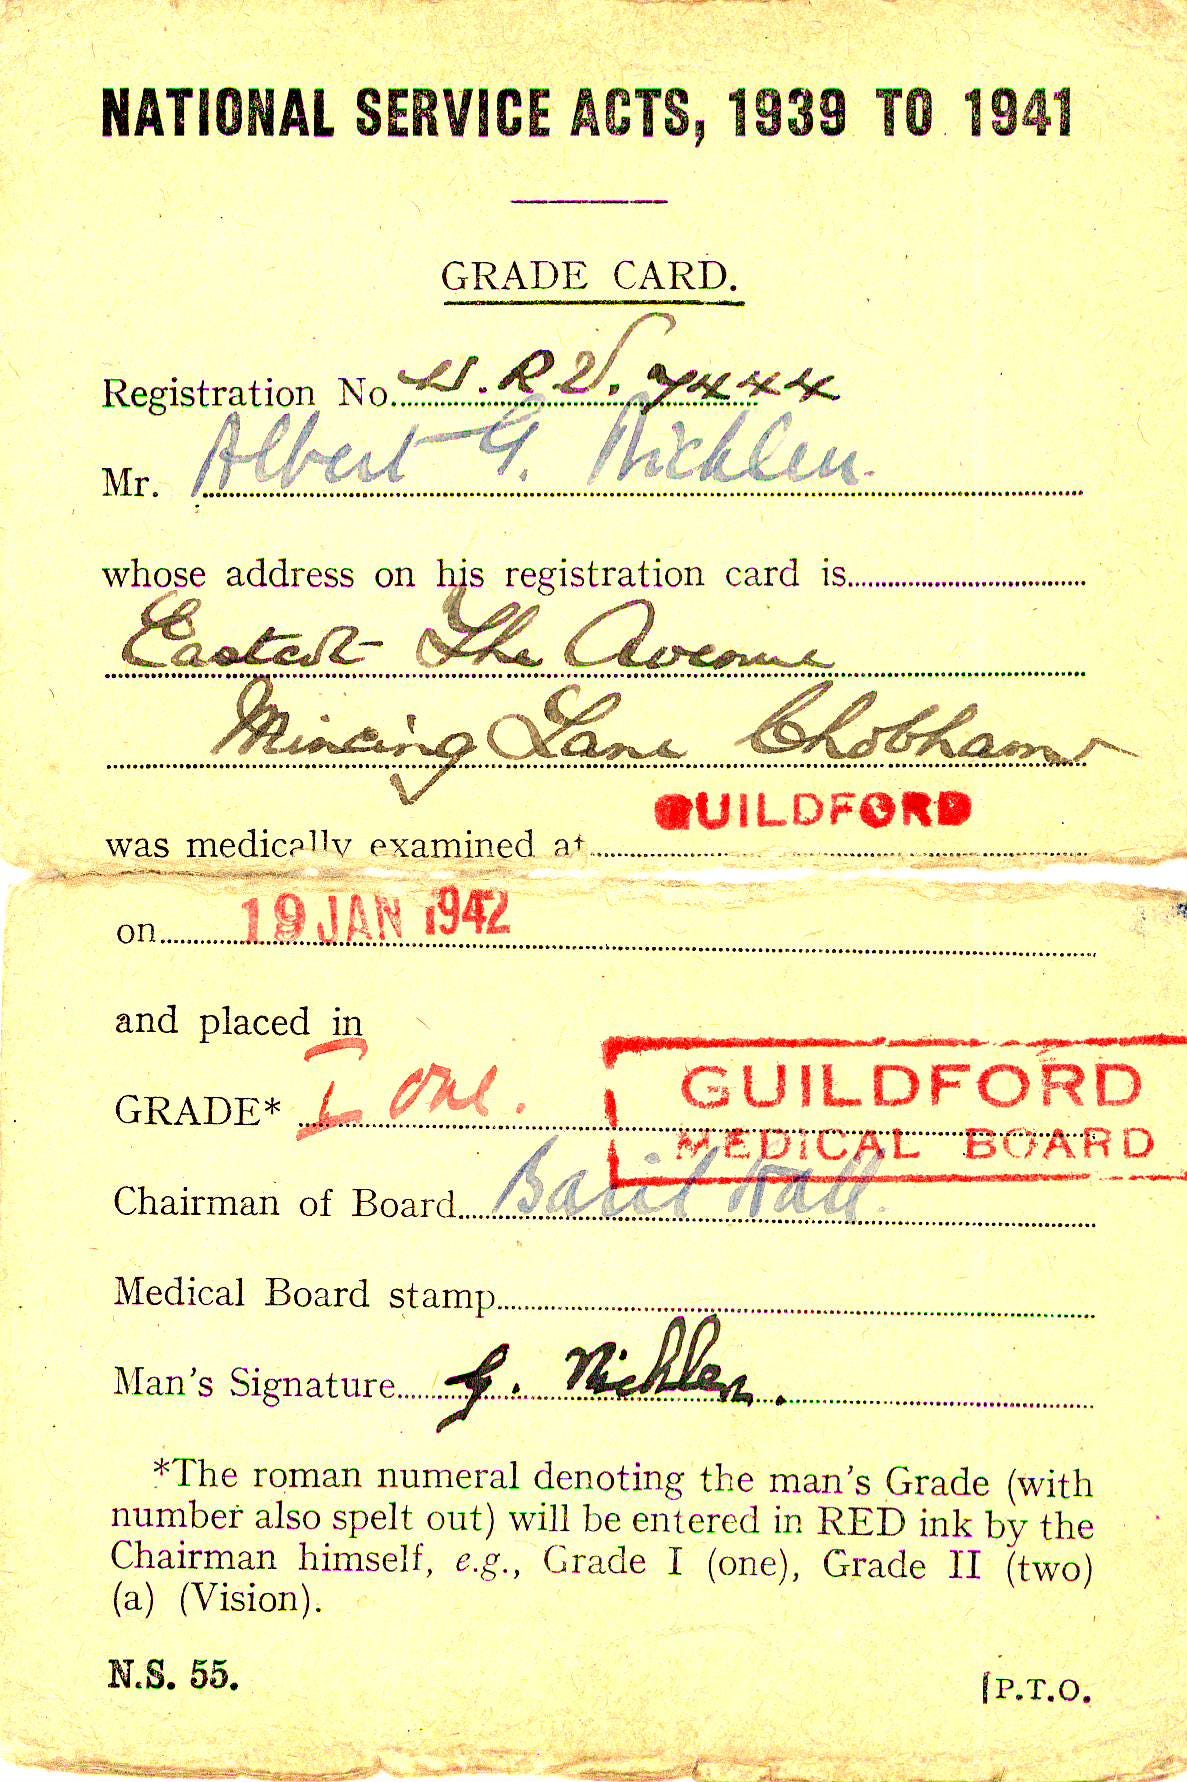 NATIONAL SERVICE ACTS, 1939 TO 1941
GRADE CARD.
Registration No. W.R.V. 7444
Mr. Albert G. Nicklen.
whose address on his registration card is
The Avenue
Mincing Lane Chobham
GUILDFORD
was medically examined at
on 19 JAN 1942
and placed in
GRADE* I one.
GUILDFORD
MEDICAL BOARD
Chairman of Board Basil Hall.
Medical Board stamp
Man's Signature G. Nicklen.
*The roman numeral denoting the man's Grade (with
number also spelt out) will be entered in RED ink by the
Chairman himself, e.g., Grade I (one), Grade II (two)
(a) (Vision).
N.S. 55.
[P.T.O.